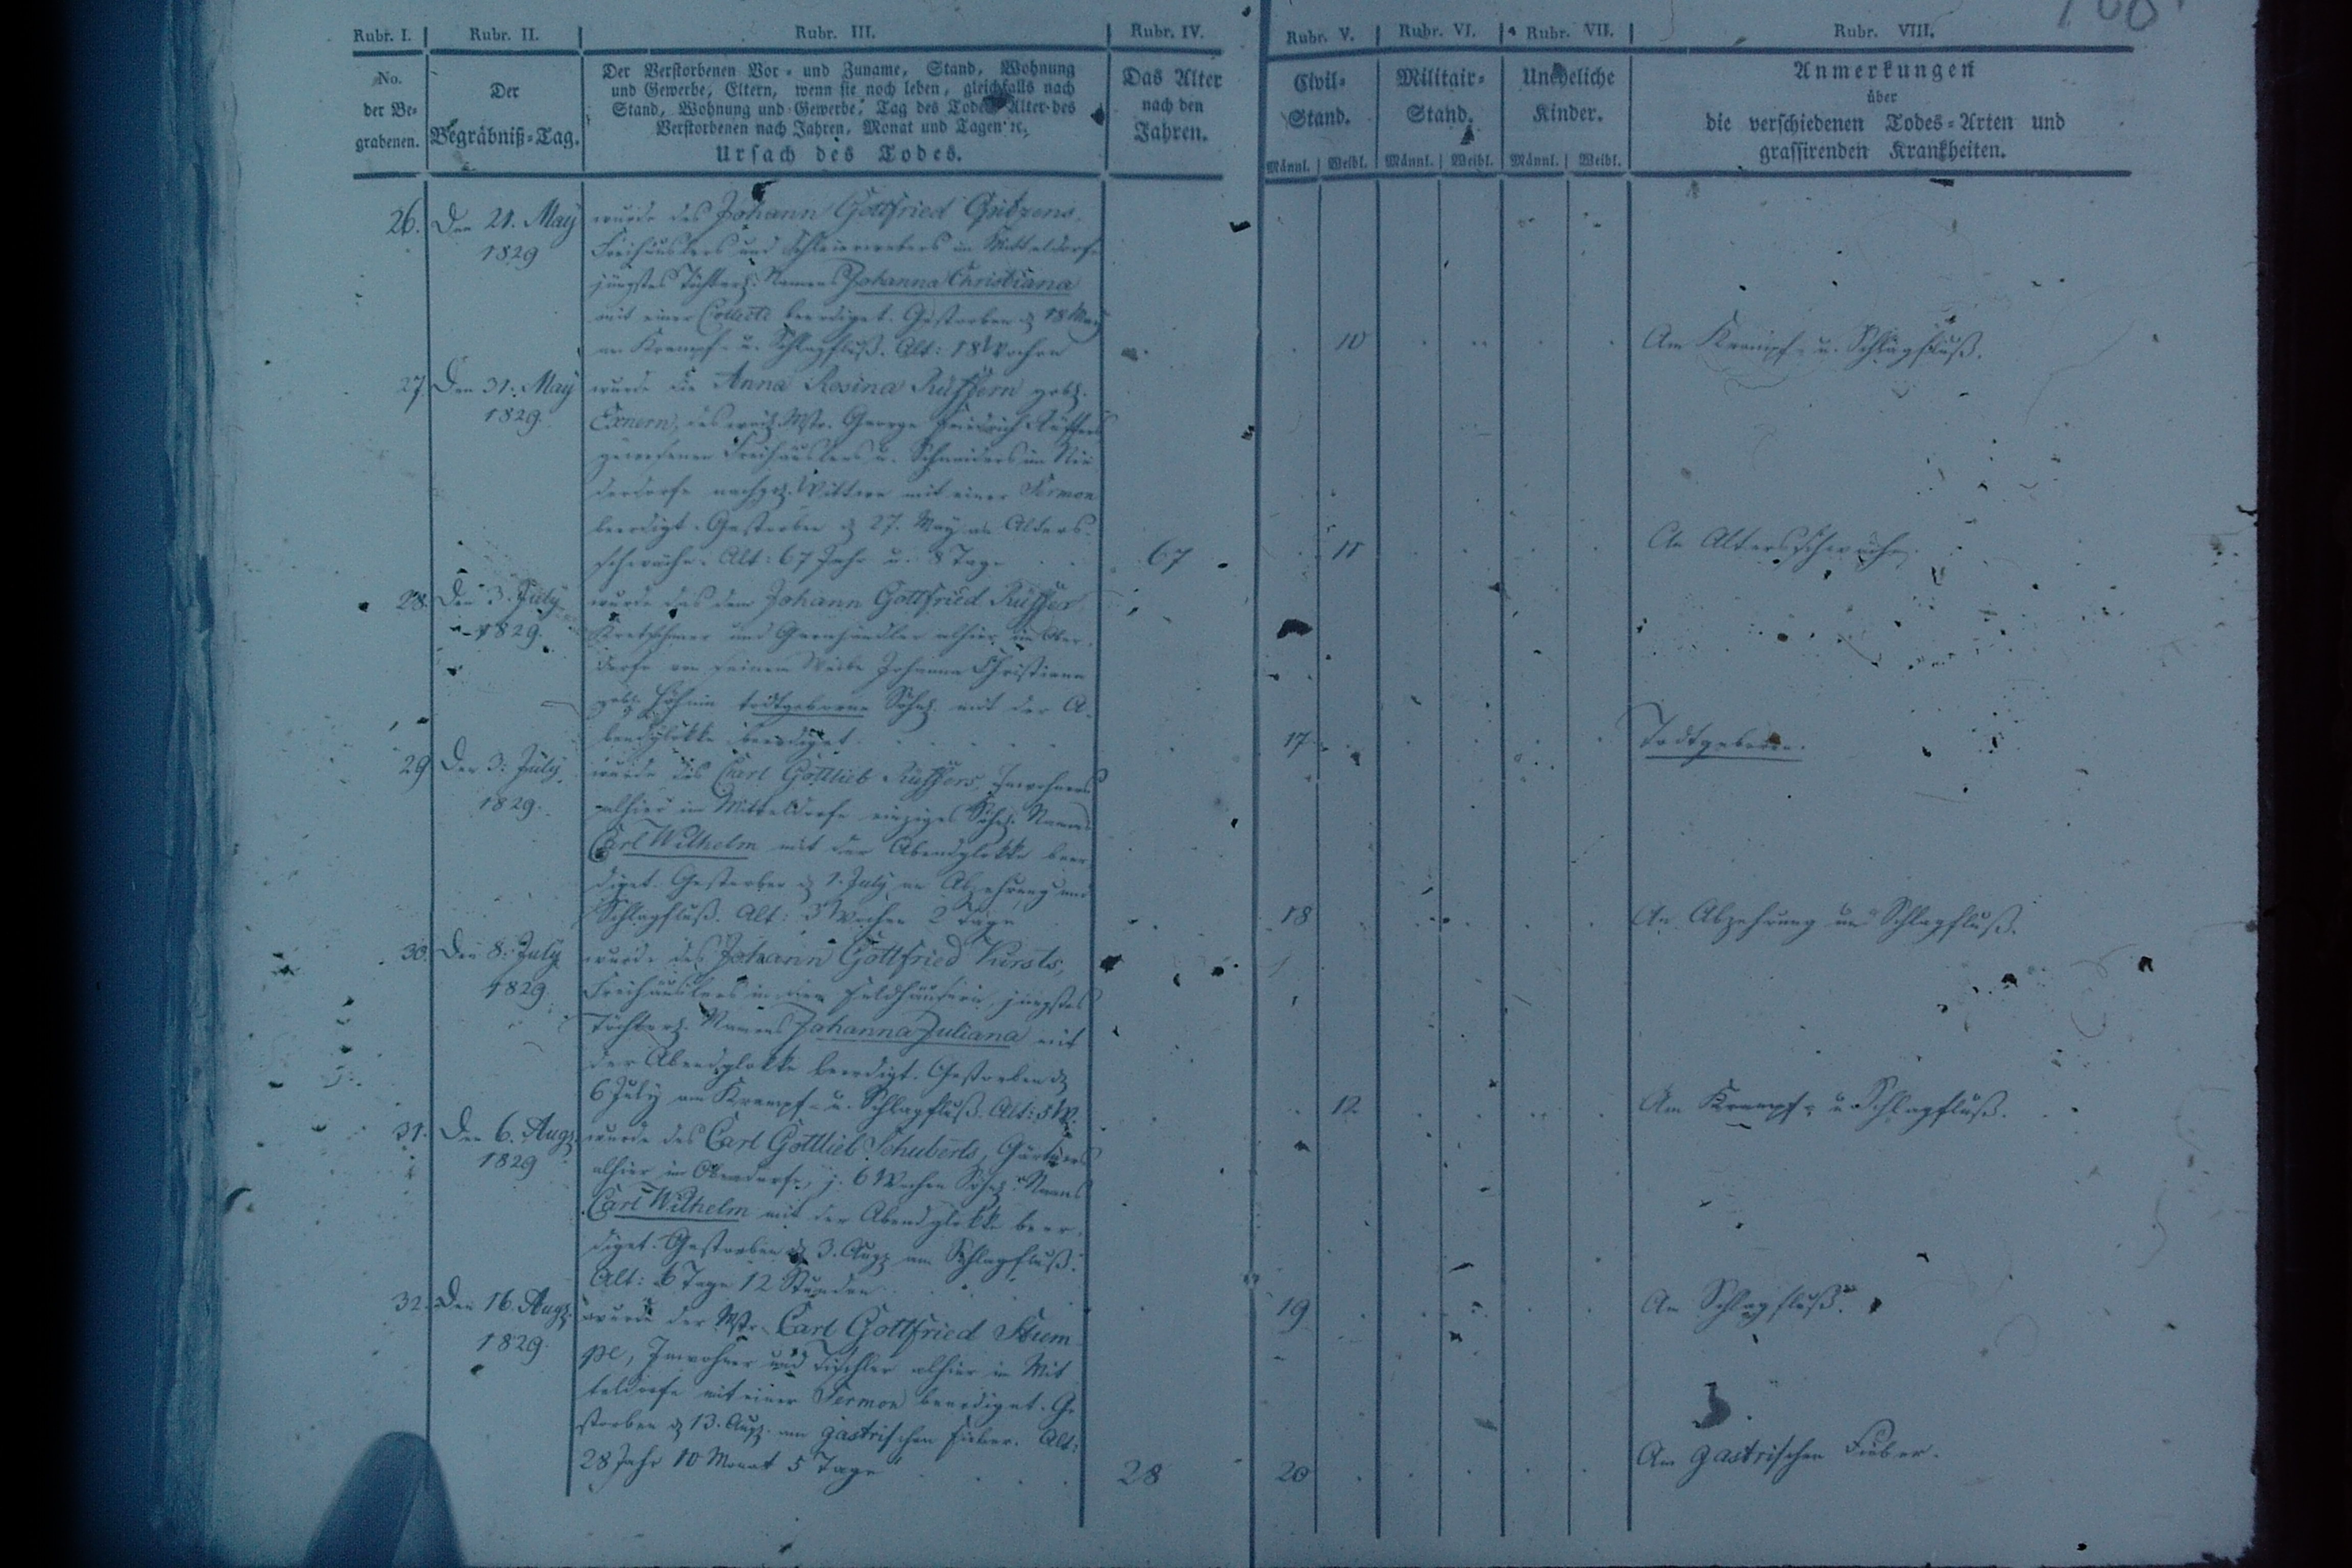 Rubr. I. Rubr. II. Rubr. III. Rubr. IV. Rubr. V. Rubr. VI. Rubr. VII. Rubr. VIII.
No.
der Be-
grabenen.
Der
Begräbniß-Tag.
Der Verstorbenen Vor- und Zuname, Stand, Wohnung
und Gewerbe, Eltern, wenn sie noch leben, gleichfalls nach
Stand, Wohnung und Gewerbe, Tag des Todes Alter des
Verstorbenen nach Jahren, Monat und Tagen ꝛc.
Ursach des Todes.
Das Alter
nach den
Jahren.
Civil-
Stand.
Männl. Weibl.
Militair-
Stand.
Männl. Weibl.
Uneheliche
Kinder.
Männl. Weibl.
Anmerkungen
über
die verschiedenen Todes-Arten und
grassirenden Krankheiten.
26. Den 21. May
1829
wurde des Johann Gottfried
Freihäuslers und Schleierwebers im Mitteldorfe
jüngstes Töchterl. Namens Johanna Christiana
mit einer Collecte beerdiget. Gestorben d. 18 May
am Krampf- u. Schlagfluß. Alt: 18 Wochen
10
Am Krampf- u. Schlagfluß.
27. Den 31. May
1829.
wurde die Anna Rosina Rüffern geb.
Exnern, des Mstr. George Friedrich Rüffers
gewesenen Freihäuslers u. Schneiders im Nie
derdorfe nachgel. Wittwe mit einer Sermon
beerdigt. Gestorben d. 27. May an Alters-
schwäche. Alt: 67 Jahr u. 8 Tage
67
11
An Altersschwäche.
28. Den 3. July
1829.
wurde das dem Johann Gottfried Rüffer,
Kretschmer und Garnhändler alhier im Ober-
dorfe von seinem Weibe Johanna Christiana
geb. todtgeborne Söhnl. mit der A-
bendglokke beerdiget.
17
Todtgeboren.
29 Den 3. July
1829.
wurde des Carl Gottlieb Rüffers, Inwohners
alhier im Mitteldorfe einziges Söhnl. Namens
Carl Wilhelm mit der Abendglokke beer
diget. Gestorben d. 1. July an Abzehrung und
Schlagfluß. Alt: 3 Wochen 2 Tage
18
An Abzehrung und Schlagfluß.
30. Den 8. July
1829
wurde des Johann Gottfried Kursts,
Freihäuslers in den Feldhäusern, jüngstes
Töchterl. Namens Johanna Juliana mit
der Abendglokke beerdigt. Gestorben d.
6 July am Krampf- u. Schlagfluß. Alt: 5 W.
12
Am Krampf- u. Schlagfluß.
31. Den 6. Aug.
1829
wurde des Carl Gottlieb Schuberts, Gärtners
alhier im Oberdorfe, j. 6 Wochen Söhnl. Namens
Carl Wilhelm mit der Abendglokke beer-
diget. Gestorben d. 3. Aug. am Schlagfluß.
Alt: 6 Tage 12 Stunden
19
Am Schlagfluß.
32. Den 16. Aug.
1829.
wurde der Mstr. Carl Gottfried Stum
pe, Inwohner und Tischler alhier im Mit
teldorfe mit einer Sermon beerdiget. Ge
storben d. 13. Aug. am gastrischen Fieber. Alt:
28 Jahr 10 Monat 5 Tage
28
20
Am gastrischen Fieber.